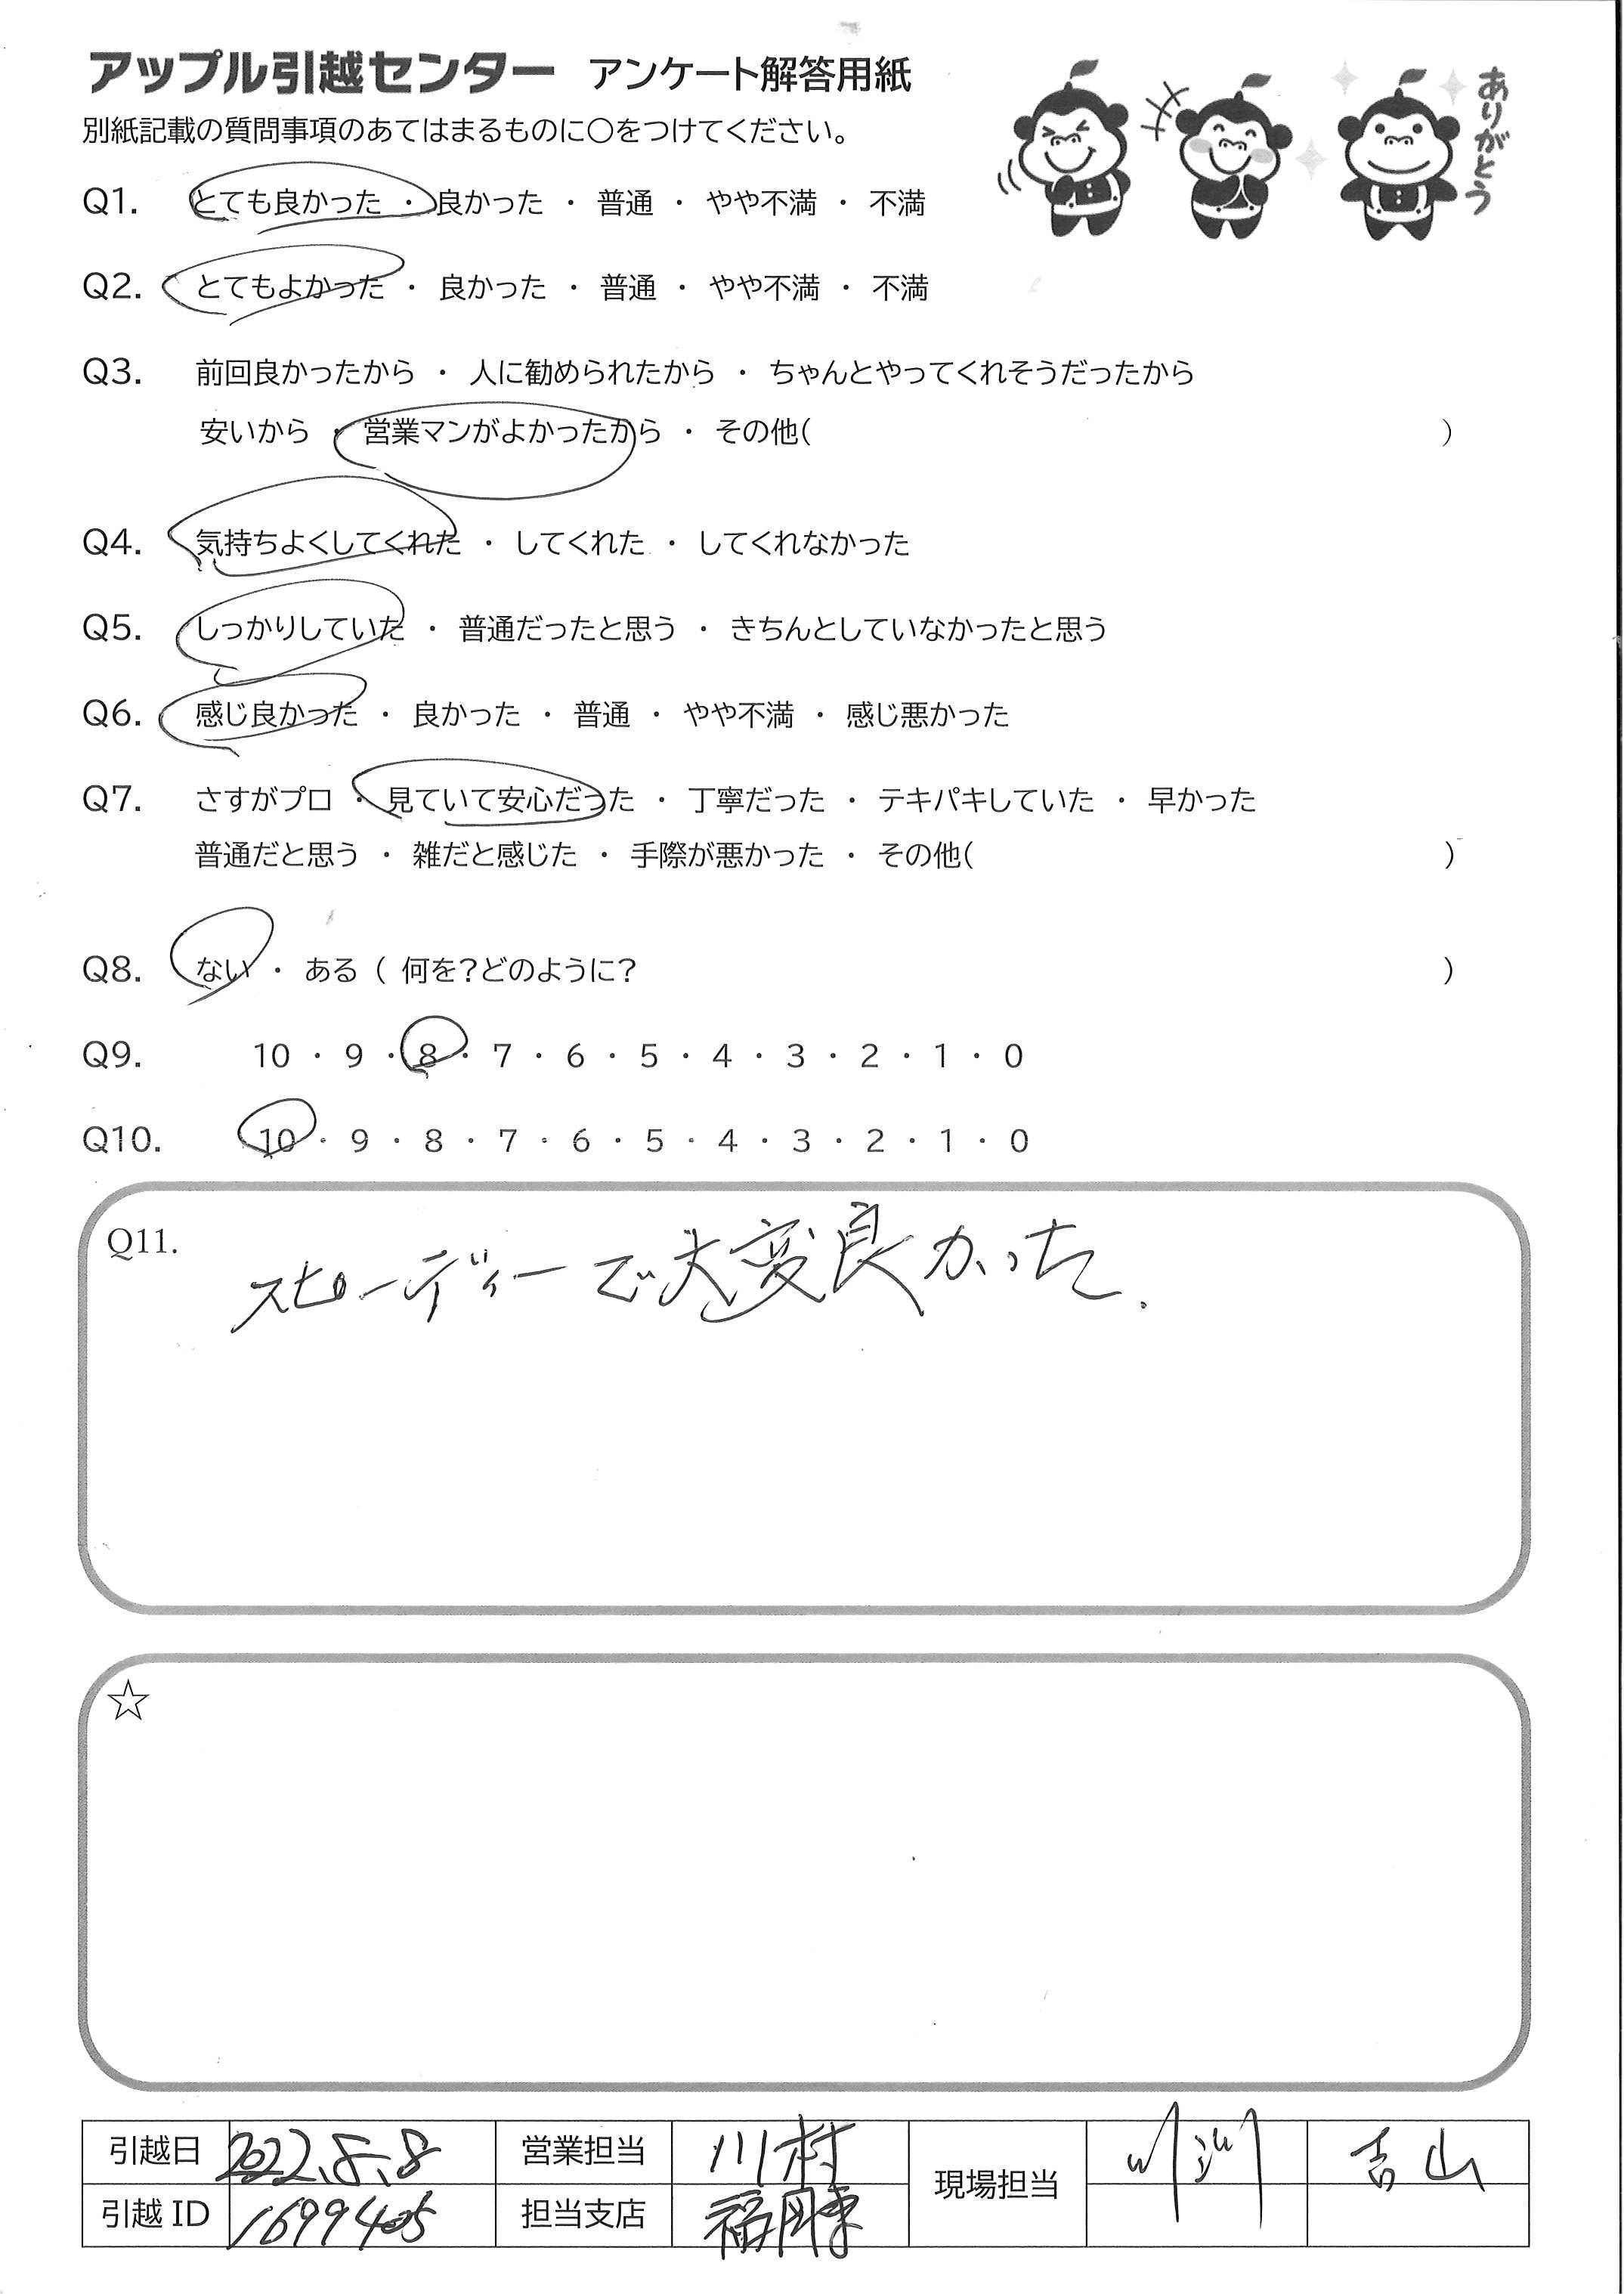 アップル引越センター アンケート解答用紙
別紙記載の質問事項のあてはまるものに〇をつけてください。
ありがとう
Q1. とても良かった ・ 良かった ・ 普通 ・ やや不満 ・ 不満
Q2. とてもよかった ・ 良かった ・ 普通 ・ やや不満 ・ 不満
Q3. 前回良かったから ・ 人に勧められたから ・ ちゃんとやってくれそうだったから
安いから ・ 営業マンがよかったから ・ その他( )
Q4. 気持ちよくしてくれた ・ してくれた ・ してくれなかった
Q5. しっかりしていた ・ 普通だったと思う ・ きちんとしていなかったと思う
Q6. 感じ良かった ・ 良かった ・ 普通 ・ やや不満 ・ 感じ悪かった
Q7. さすがプロ ・ 見ていて安心だった ・ 丁寧だった ・ テキパキしていた ・ 早かった
普通だと思う ・ 雑だと感じた ・ 手際が悪かった ・ その他( )
Q8. ない ・ ある ( 何を?どのように? )
Q9. 10 ・ 9 ・ 8 ・ 7 ・ 6 ・ 5 ・ 4 ・ 3 ・ 2 ・ 1 ・ 0
Q10. 10 ・ 9 ・ 8 ・ 7 ・ 6 ・ 5 ・ 4 ・ 3 ・ 2 ・ 1 ・ 0
Q11.
スピーディーで大変良かった.
☆
引越日 2022.8.8 営業担当 川村 現場担当 吉山
引越 ID 1699405 担当支店 福岡東